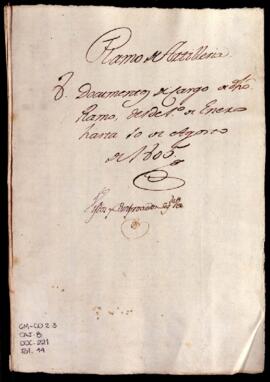 Ramo de Artilleria
8. Documentos de cargo de dho
Ramo, desde 1º de Enero
hasta 10 de Agosto
de 1805
GM-CO 2-3
CAJ. 8
DOC. 221
Fol. 44